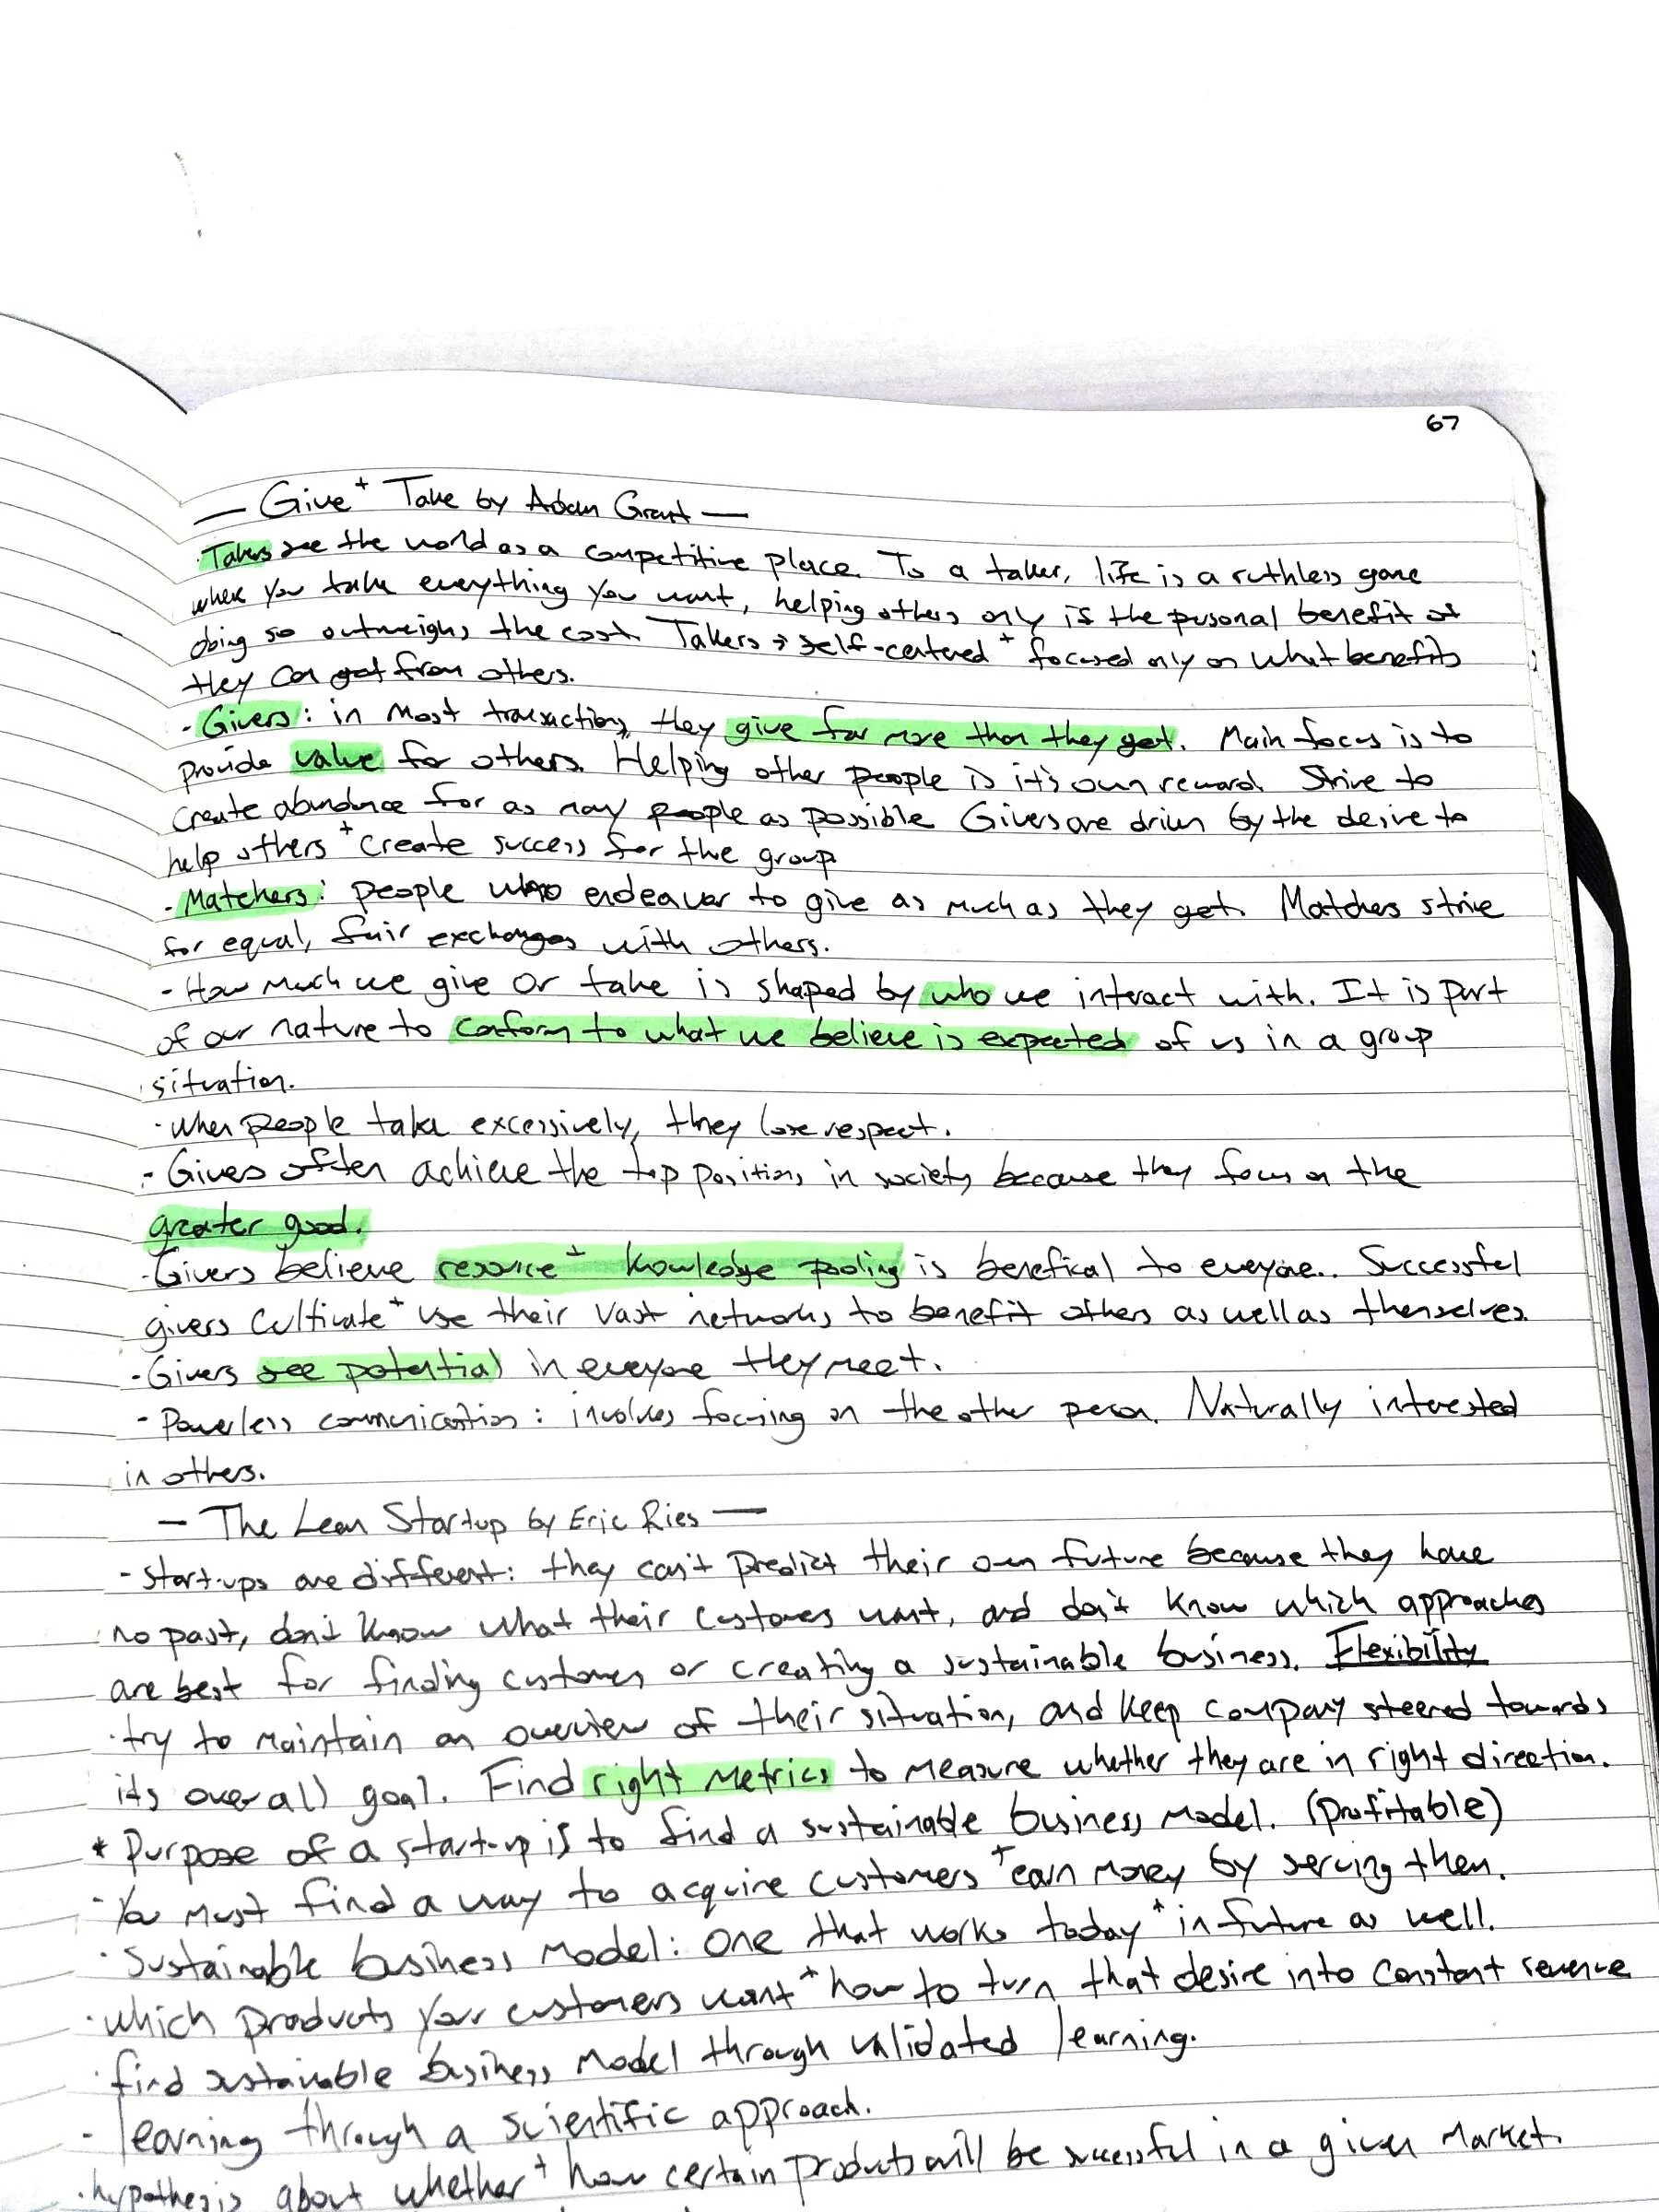 67
— Give + Take by Adam Grant —
· Takers see the world as a competitive place. To a taker, life is a ruthless game
where you take everything you want, helping others only if the personal benefit of
doing so outweighs the cost. Takers → self-centered + focused only on what benefits
they can get from others.
- Givers: in most transactions, they give far more than they get. Main focus is to
provide value for others. Helping other people is it's own reward. Strive to
create abundance for as many people as possible. Givers are driven by the desire to
help others + create success for the group
- Matchers: people who endeavor to give as much as they get. Matchers strive
for equal, fair exchanges with others.
- How much we give or take is shaped by who we interact with. It is part
of our nature to conform to what we believe is expected of us in a group
situation.
· When people take excessively, they lose respect.
- Givers often achieve the top positions in society because they focus on the
greater good.
- Givers believe resource + knowledge pooling is benefical to everyone. Successful
givers cultivate + use their vast networks to benefit others as well as themselves.
- Givers see potential in everyone they meet.
- Powerless communication: involves focusing on the other person. Naturally interested
in others.
— The Lean Startup by Eric Ries —
- Start-ups are different: they can't predict their own future because they have
no past, don't know what their customers want, and don't know which approaches
are best for finding customers or creating a sustainable business. Flexibility
· try to maintain an overview of their situation, and keep company steered towards
its overall goal. Find right metrics to measure whether they are in right direction.
* Purpose of a start-up is to find a sustainable business model. (profitable)
- You must find a way to acquire customers + earn money by serving them.
· Sustainable business model: one that works today + in future as well.
· which products your customers want + how to turn that desire into constant revenue
· find sustainable business model through validated learning.
- learning through a scientific approach.
· hypothesis about whether + how certain products will be successful in a given market.